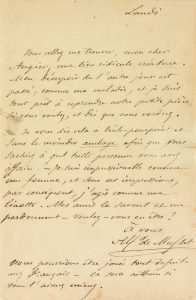 Lundi
Vous allez me trouver, mon cher
Augier, une très ridicule créature.
Mon désespoir de l'autre jour est
passé, comme une maladie, et je suis
tout prêt à reprendre notre petite pièce,
si vous voulez, et dès que vous voudrez.
Je vous dis cela à brûle-pourpoint et
sans le moindre ambage afin que vous
sachiez à quel personnage vous avez
affaire. — Je suis impressionnable comme
une femme, et sous ces impressions,
par conséquent, j'agis comme une
linotte. Mes amis le savent et me
pardonnent — voulez-vous en être ?
à vous
Alf de Musset
Nous pourrions être joués tout de suite
aux Français — ce sera ailleurs si
vous l'aimez mieux.